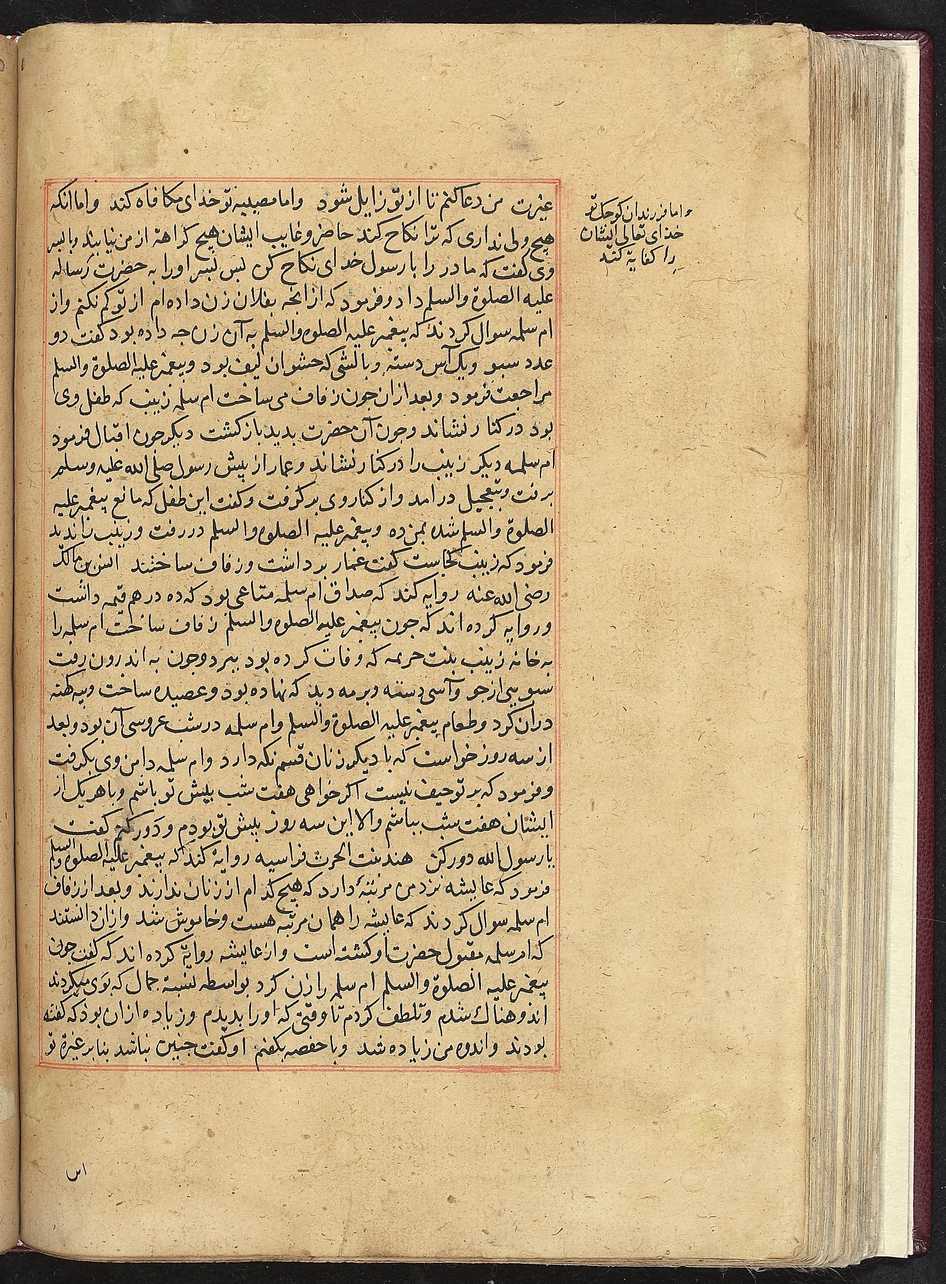 غیرت من دعا کنم تا از تو زایل شود و اما مصیبه تو خدای مکافاه کند و اما انکه
هیچ ولی نداری که ترا نکاح کند حاضر و غایب ایشان هیچ کراهة از من نیابند و با پسر
وی کفت که مادر را با رسول خدای نکاح کن پس پسر او را به حضرت رساله
علیه الصلوة والسلم داد و فرمود که از انچه بفلان زن داده ام از تو کم نکنم و از
ام سلمه سوال کردند که پیغمبر علیه الصلوه والسلم به آن زن چه داده بود کفت دو
عدد سبو و یک آس دسته و بالشی که حشو ان لیف بود و پیغمبر علیه الصلوة والسلم
مراجعت فرمود و بعد ازان چون زفاف می ساخت ام سلمه زینب که طفل وی
بود در کنار نشاند و چون آن حضرت بدید باز کشت دیکر چون اقبال فرمود
ام سلمه دیکر زینب را در کنار نشاند و عمار از پیش رسول صلی الله علیه وسلم
برفت و بتعجیل درامد و از کنار وی بر کرفت و کفت این طفل که مانع پیغمبر علیه
الصلوة والسلم شده بمن ده و پیغمبر علیه الصلوه والسلم در رفت و زینب را ندید
فرمود که زینب کجاست کفت عمار برداشت و زفاف ساختند انس بن مالک
رضی الله عنه روایه کند که صداق ام سلمه متاعی بود که ده درهم قیمه داشت
و روایه کرده اند که چون پیغمبر علیه الصلوه والسلم زفاف ساخت ام سلمه را
به خانه زینب بنت خزیمه که وفات کرده بود ببرد و چون به اندرون رفت
سبویی از جو و آسی دسته و برمه دید که نهاده بود و عصیده ساخت و پیه کهنه
دران کرد و طعام پیغمبر علیه الصلوة والسلم و ام سلمه در شب عروسی آن بود و بعد
از سه روز خواست که با دیکر زنان قسم نکه دارد و ام سلمه دامن وی بکرفت
و فرمود که بر تو حیف نیست اکر خواهی هفت شب پیش تو باشم و با هر یک از
ایشان هفت شب باشم والا این سه روز پیش تو بودم و دور کنم کفت
یا رسول الله دور کن هند بنت الحرث فراسیه روایة کند که پیغمبر علیه الصلوه والسلم
فرمود که عایشه نزد من مرتبهٔ دارد که هیچ کدام از زنان ندارند و بعد از زفاف
ام سلمه سوال کردند که عایشه را همان مرتبه هست و خاموش شد و ازان دانستند
که ام سلمه مقبول حضرت او کشته است و از عایشه روایة کرده اند که کفت چون
پیغمبر علیه الصلوة والسلم ام سلمه را زن کرد بواسطه نسبة جمال که بوی میکردند
اندوهناک شدم و تلطف کردم تا وقتی که او را بدیدم و زیاده ازان بود که کفته
بودند و اندوه من زیاده شد و با حفصه بکفتم او کفت چنین نباشد بنا بر غیرة تو
و اما فرزندان کوچک تو
خدای تعالی ایشان
را کفایة کند